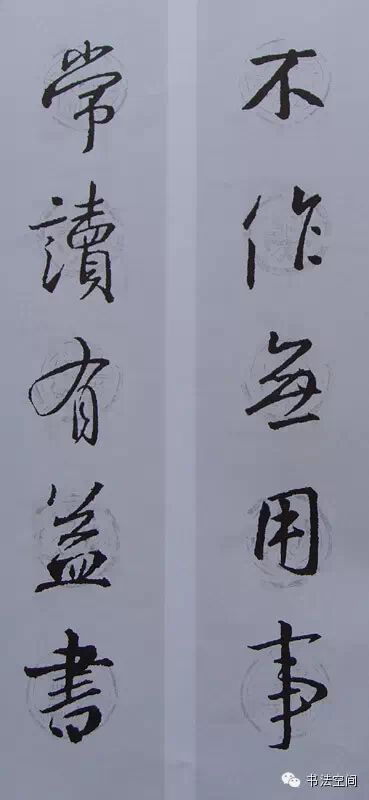 不作無用事
常讀有益書
书法空间